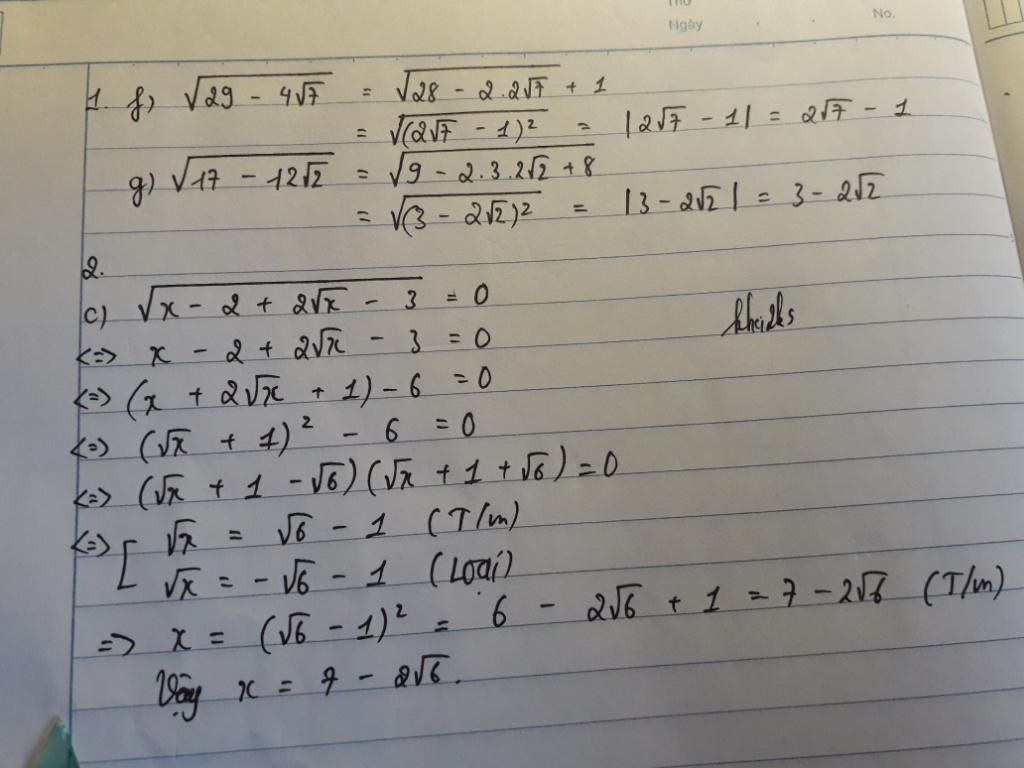 Thứ
Ngày
No.
1. f) √(29 - 4√7) = √(28 - 2.2√7 + 1)
= √((2√7 - 1)²) = |2√7 - 1| = 2√7 - 1
g) √(17 - 12√2) = √(9 - 2.3.2√2 + 8)
= √((3 - 2√2)²) = |3 - 2√2| = 3 - 2√2
2.
c) √(x - 2 + 2√x - 3) = 0
<=> x - 2 + 2√x - 3 = 0
<=> (x + 2√x + 1) - 6 = 0
<=> (√x + 1)² - 6 = 0
<=> (√x + 1 - √6)(√x + 1 + √6) = 0
<=> [ √x = √6 - 1 (T/m)
√x = -√6 - 1 (Loại)
=> x = (√6 - 1)² = 6 - 2√6 + 1 = 7 - 2√6 (T/m)
Vậy x = 7 - 2√6.